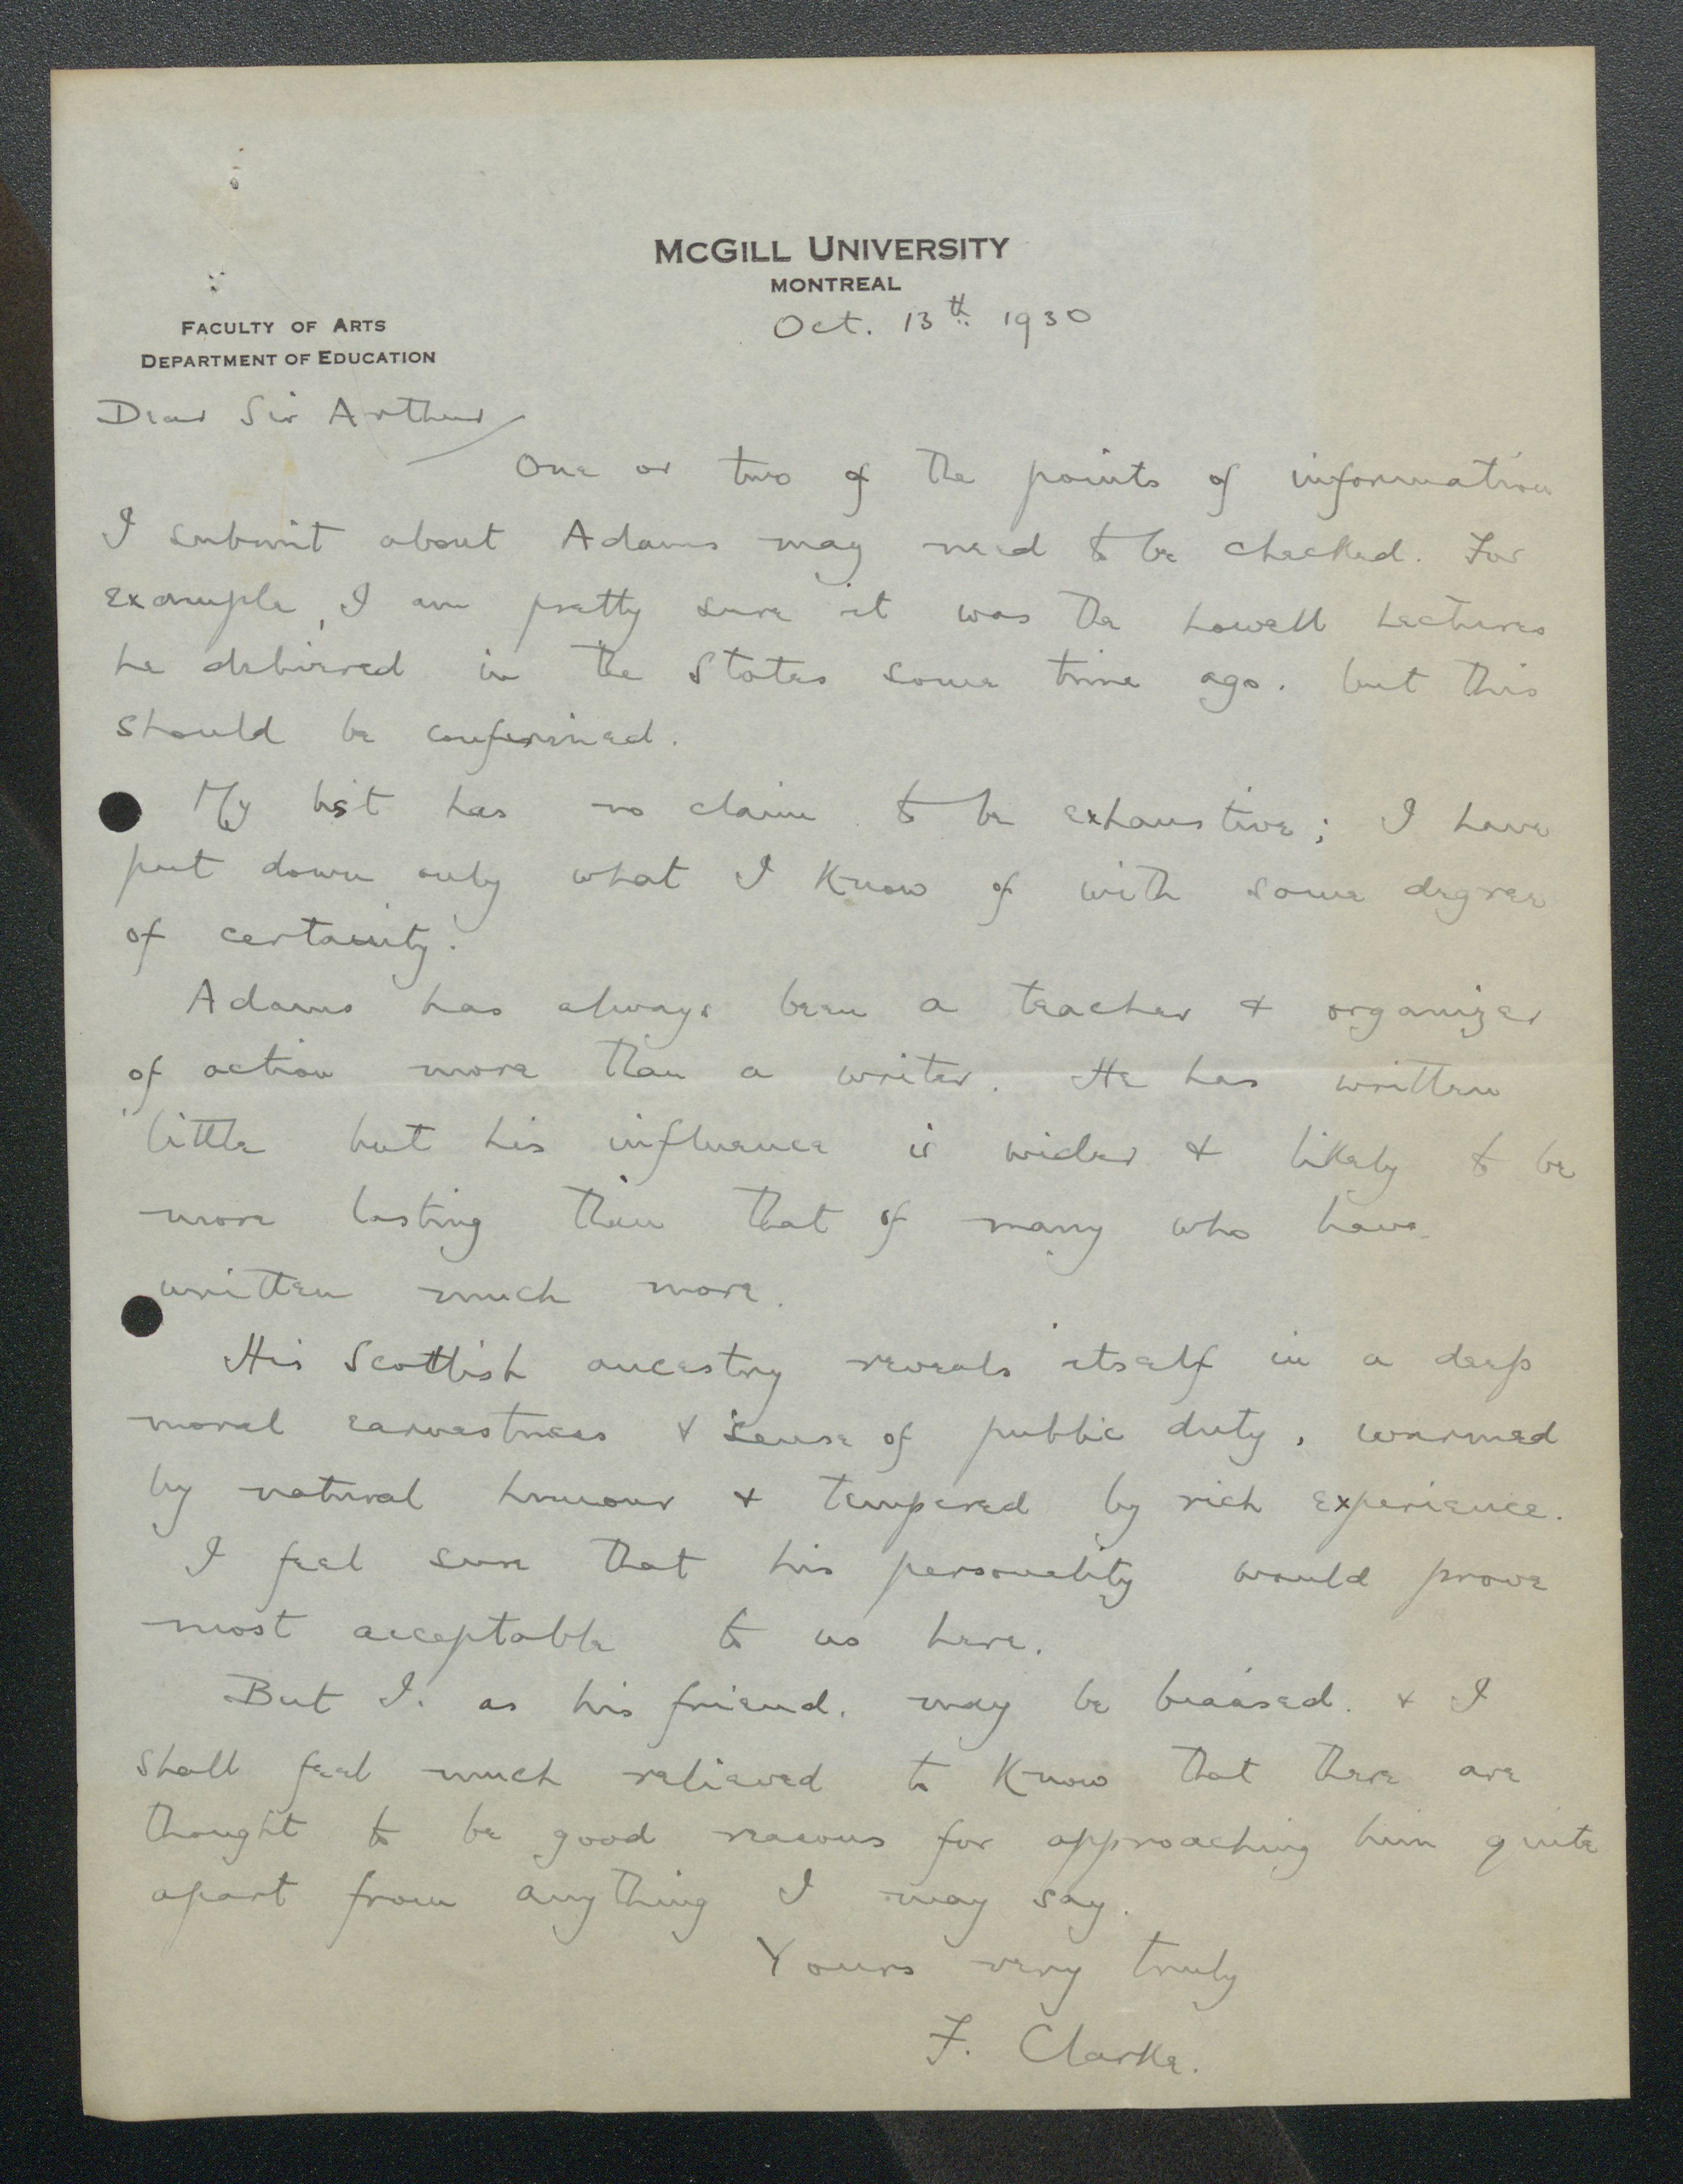 McGILL UNIVERSITY
MONTREAL
Oct. 13th 1930
FACULTY OF ARTS
DEPARTMENT OF EDUCATION
Dear Sir Arthur
One or two of the points of information
I submit about Adams may need to be checked. For
example, I am pretty sure it was the Lowell Lectures
he delivered in the States some time ago. but this
should be confirmed.
My list has no claim to be exhaustive; I have
put down only what I know of with some degree
of certainty.
Adams has always been a teacher & organizer
of action more than a writer. He has written
little but his influence is wider & likely to be
more lasting than that of many who have
written much more.
His Scottish ancestry reveals itself in a deep
moral earnestness & sense of public duty, warmed
by natural humour & tempered by rich experience.
I feel sure that his personality would prove
most acceptable to us here.
But I. as his friend. may be biassed. & I
shall feel much relieved to know that there are
thought to be good reasons for approaching him quite
apart from anything I may say.
Yours very truly
F. Clarke.